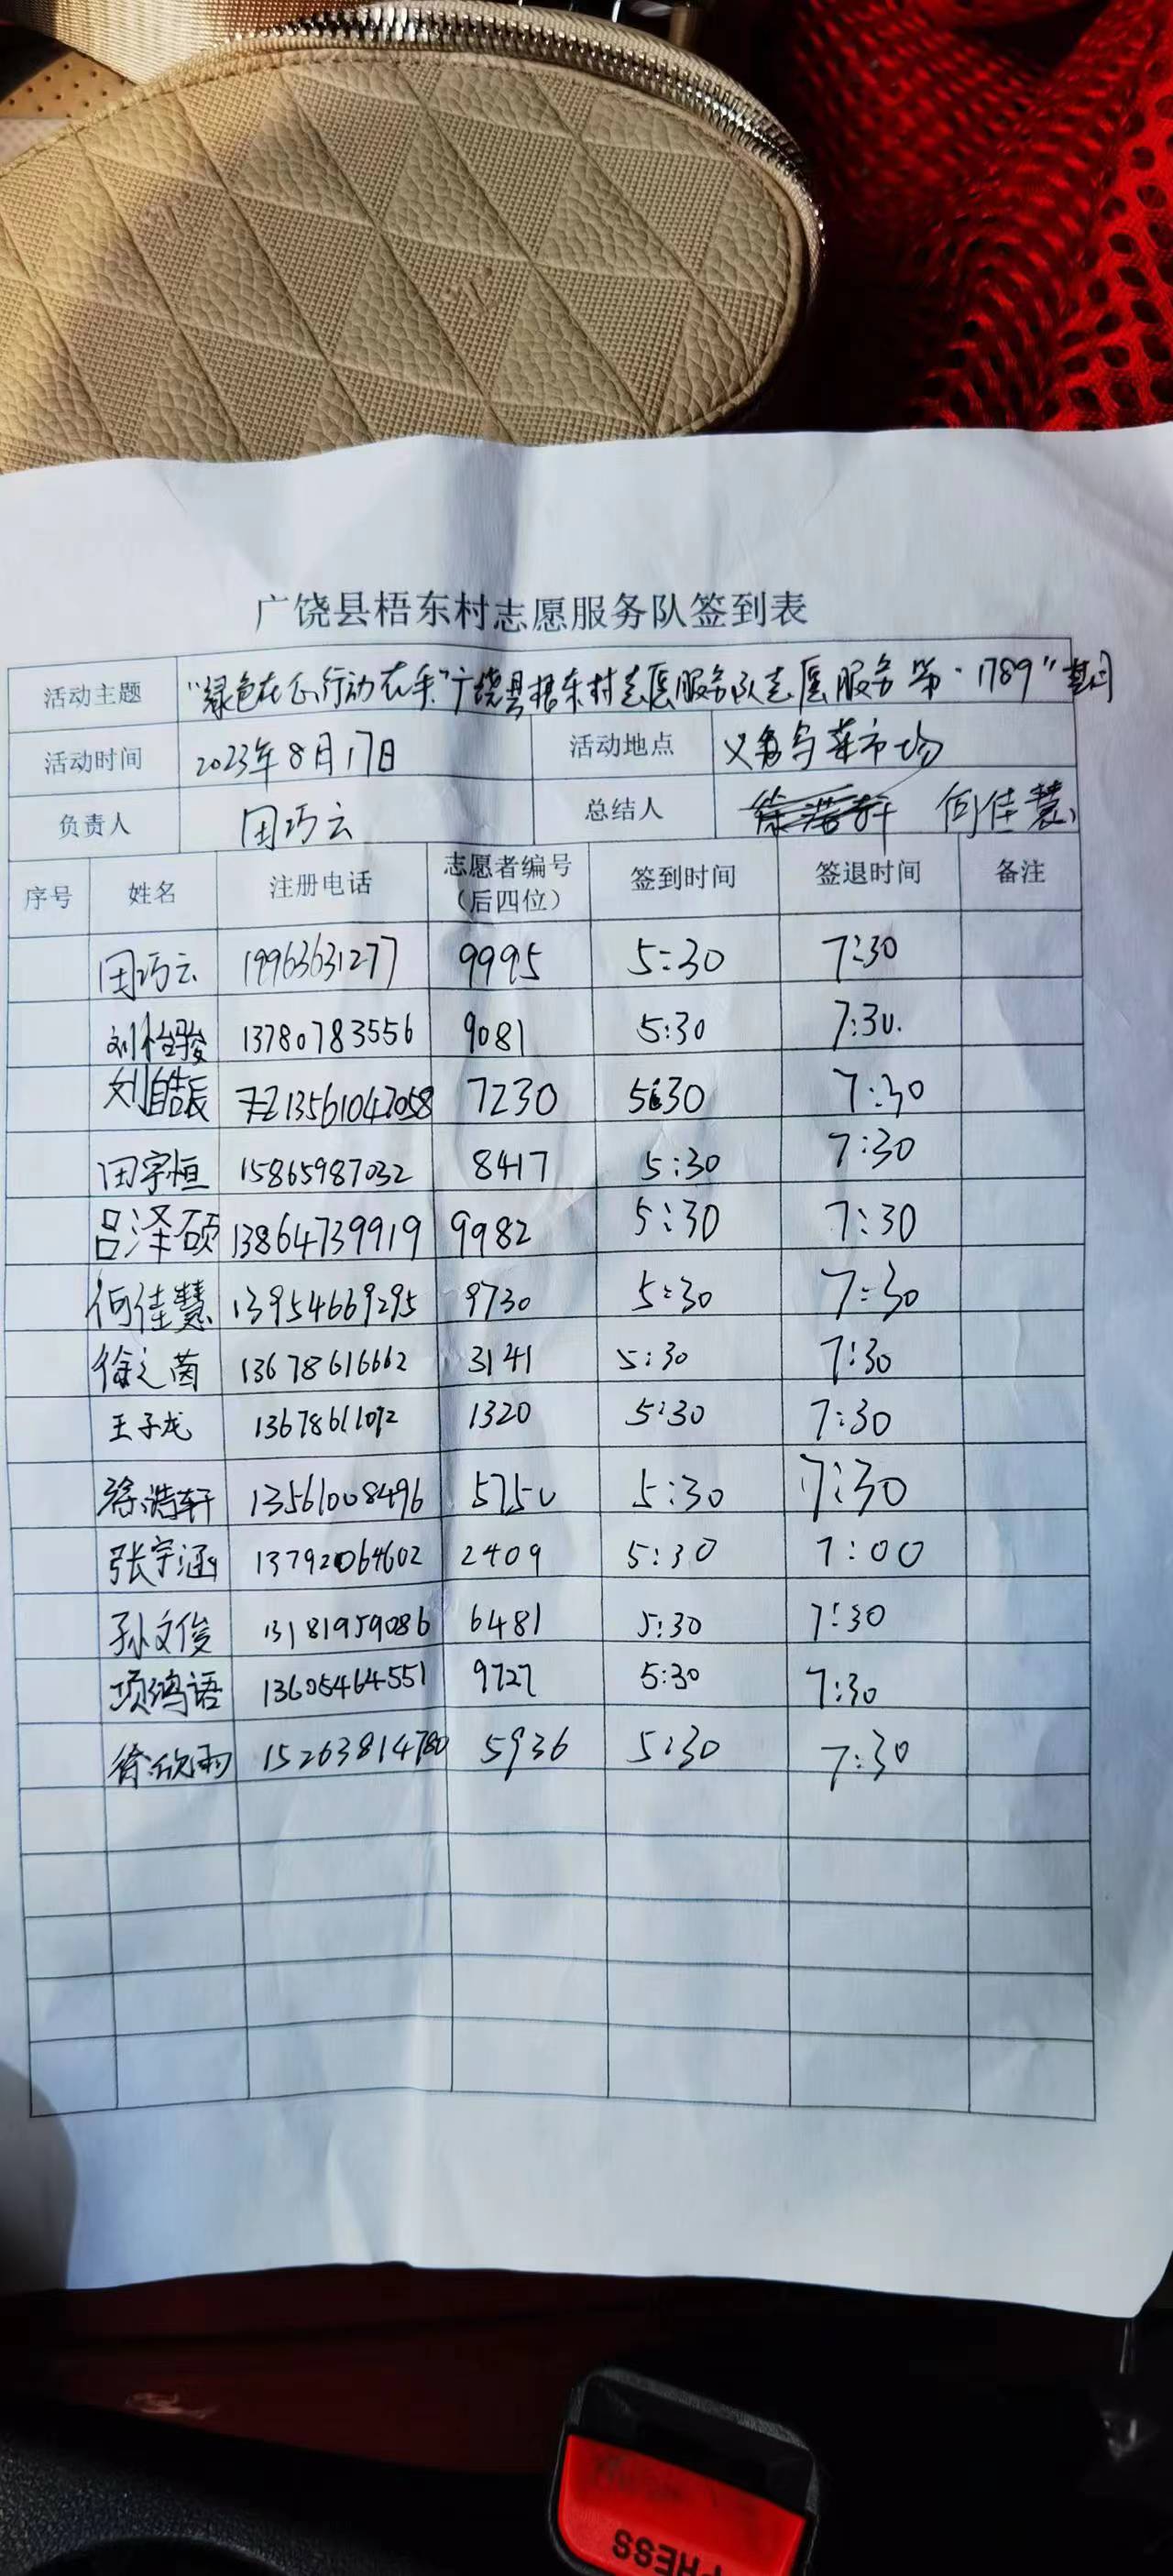 广饶县梧东村志愿服务队签到表
活动主题 "绿色在心,行动在手"广饶县梧东村志愿服务队志愿服务第·1789"期
活动时间 2023年8月17日 活动地点 义乌菜市场
负责人 田巧云 总结人 何佳慧
序号 姓名 注册电话 志愿者编号（后四位） 签到时间 签退时间 备注
田巧云 19963631277 9995 5:30 7:30
刘怡骏 13780783556 9081 5:30 7:30.
刘皓辰 13561047058 7230 5:30 7:30
田宇恒 15865987032 8417 5:30 7:30
吕泽硕 13864739919 9982 5:30 7:30
何佳慧 13954669295 9730 5:30 7:30
徐之茵 13678616662 3141 5:30 7:30
王子龙 1320 5:30 7:30
徐浩轩 13561008496 5750 5:30 7:30
张宇涵 13792064602 2409 5:30 7:00
孙文俊 13181959086 6481 5:30 7:30
项鸿语 13605464551 9727 5:30 7:30
徐欣雨 15263814780 5936 5:30 7:30
PRESS